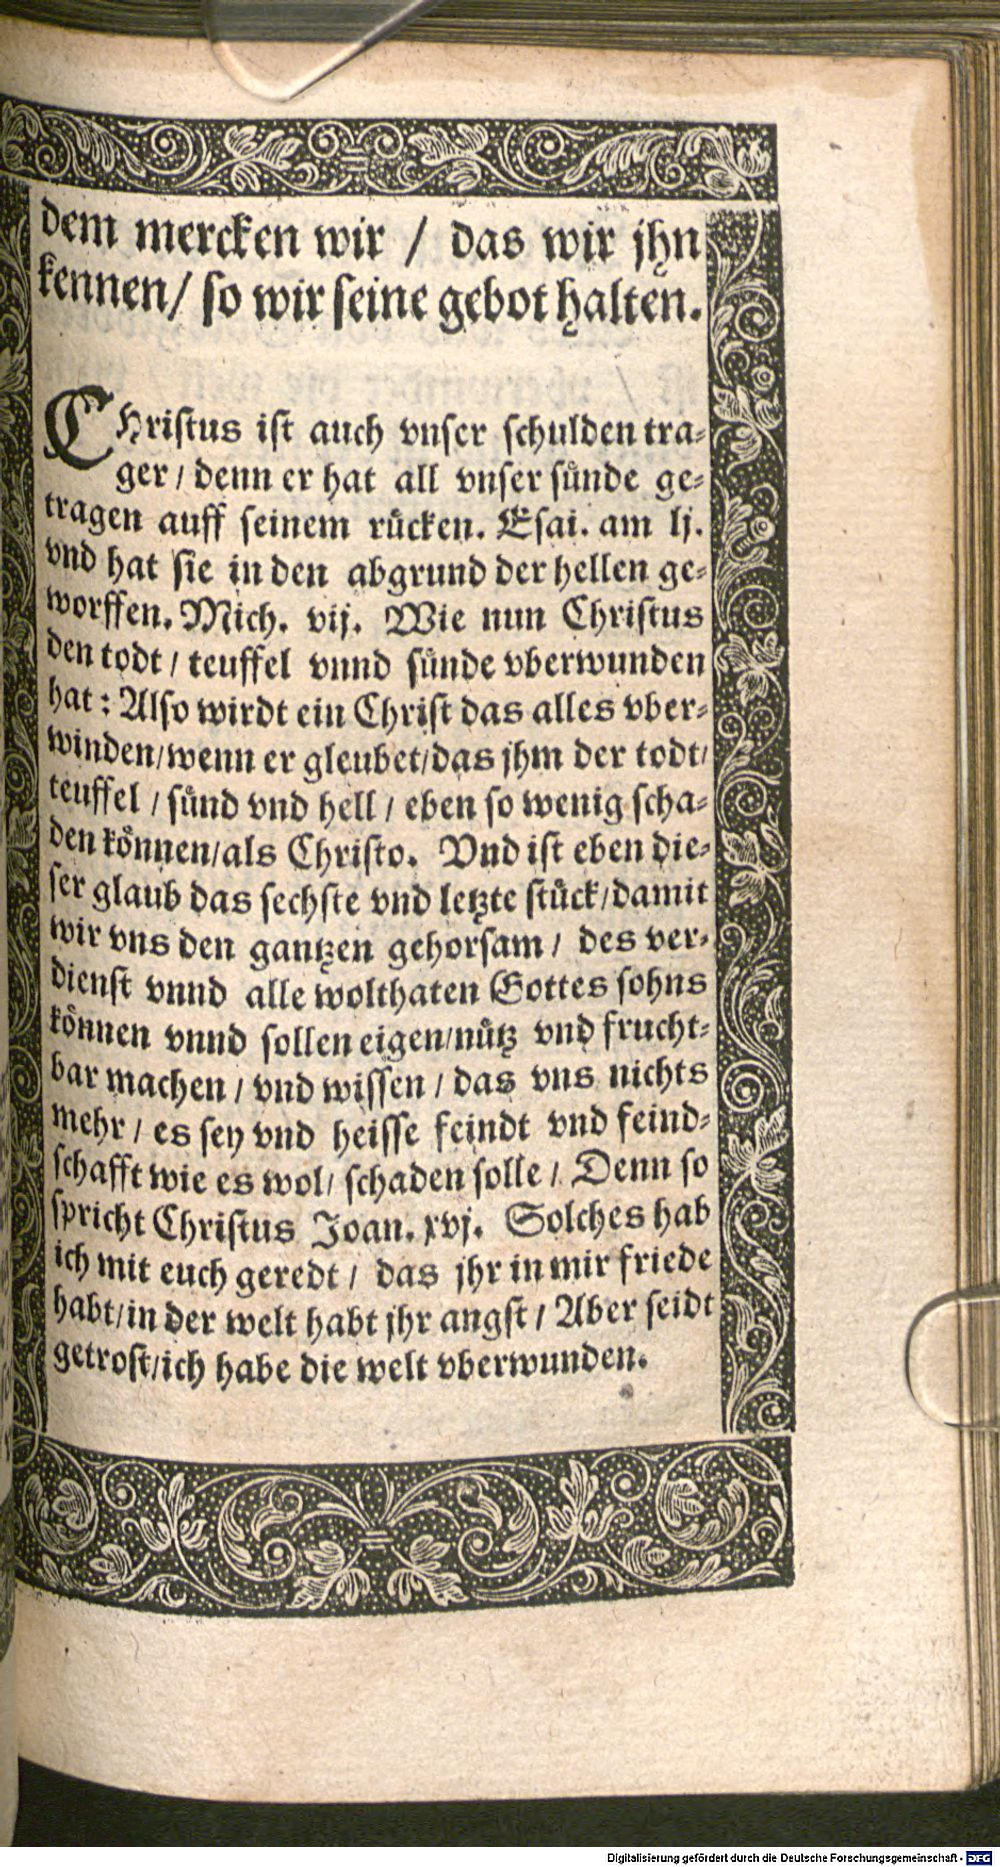 dem mercken wir / das wir jhn
kennen/ so wir seine gebot halten.
CHristus ist auch vnser schulden tra-
ger / denn er hat all vnser sünde ge-
tragen auff seinem rücken. Esai. am lj.
vnd hat sie in den abgrund der hellen ge-
worffen. Mich. vij. Wie nun Christus
den todt / teuffel vnnd sünde vberwunden
hat : Also wirdt ein Christ das alles vber-
winden/wenn er gleubet/das jhm der todt/
teuffel / sünd vnd hell / eben so wenig scha-
den können/als Christo. Vnd ist eben die-
ser glaub das sechste vnd letzte stück/damit
wir vns den gantzen gehorsam / des ver-
dienst vnnd alle wolthaten Gottes sohns
können vnnd sollen eigen/nütz vnd frucht-
bar machen / vnd wissen / das vns nichts
mehr / es sey vnd heisse feindt vnd feind-
schafft wie es wol/ schaden solle / Denn so
spricht Christus Joan. xvj. Solches hab
ich mit euch geredt / das jhr in mir friede
habt/in der welt habt jhr angst / Aber seidt
getrost/ich habe die welt vberwunden.
Digitalisierung gefördert durch die Deutsche Forschungsgemeinschaft - DFG